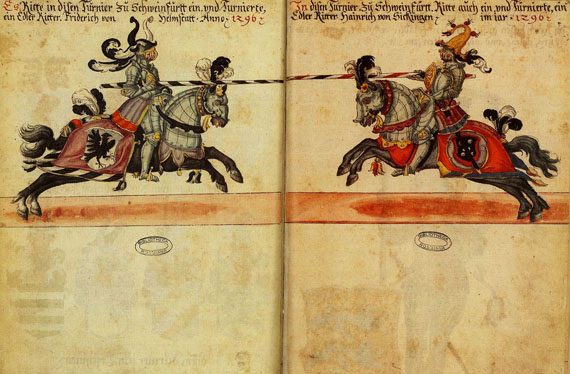 Es Ritte in disen Turnier zu Schweinfürtt ein, vnd Turnierte,
ein Edler Ritter. Friderich von Helmstatt. Anno. 1296.
In disen Turnier zu Schweinfürtt. Ritte auch ein, vnd Turnierte, ein
Edler Ritter Hainrich von Sickingen im iar. 1296.
BIBLIOTHECA
BIBLIOTHECA